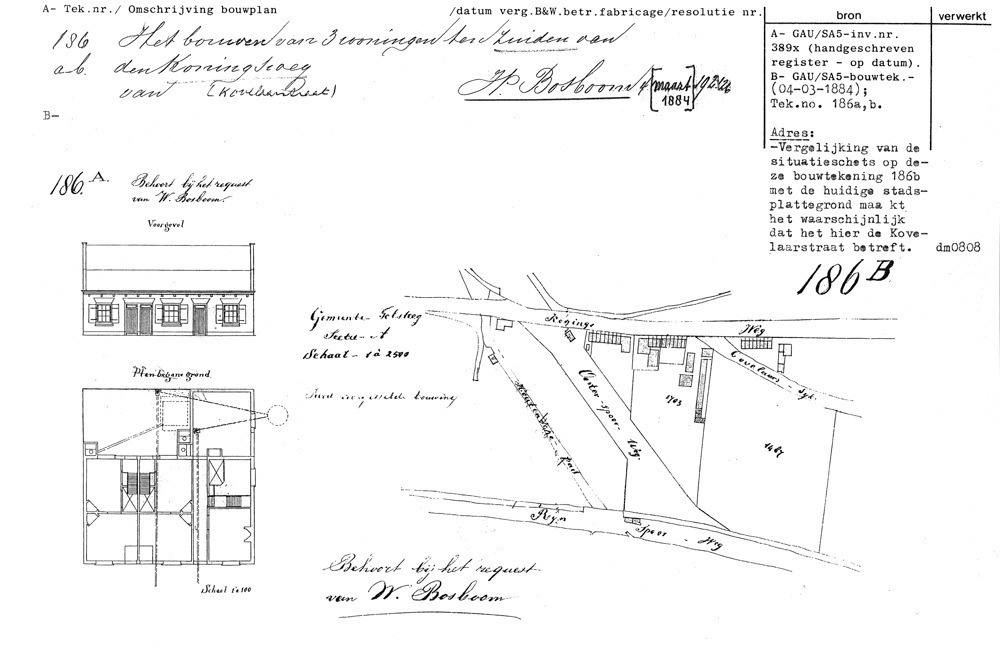 A- Tek.nr./ Omschrijving bouwplan /datum verg.B&W.betr.fabricage/resolutie nr.
bron
verwerkt
186 Het bouwen van 3 woningen ten Zuiden van
a.b. den Koningsweg
van (Kovelaarstraat)
H.P. Bosboom 4 [maart 1884]
B-
A- GAU/SA5-inv.nr.
389x (handgeschreven
register - op datum).
B- GAU/SA5-bouwtek.-
(04-03-1884);
Tek.no. 186a,b.
Adres:
-Vergelijking van de
situatieschets op de-
ze bouwtekening 186b
met de huidige stads-
plattegrond maa kt
het waarschijnlijk
dat het hier de Kove-
laarstraat betreft.
dm0808
186. A.
Behoort bij het request
van W. Bosboom.
Voorgevel
Plan begane grond
Schaal 1 à 100
186 B
Gemeente
Sectie A
Schaal 1 à 2500
Konings Weg
Covelaars - dyk.
Ooster-spoor-Weg.
pad
1703
1467
Rijn Spoor - Weg
Behoort bij het request
van W. Bosboom